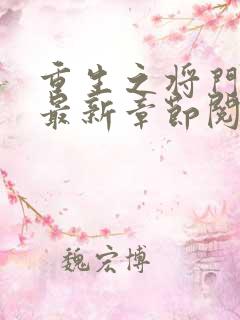 重生之将门
最新章节阅
魏宏博